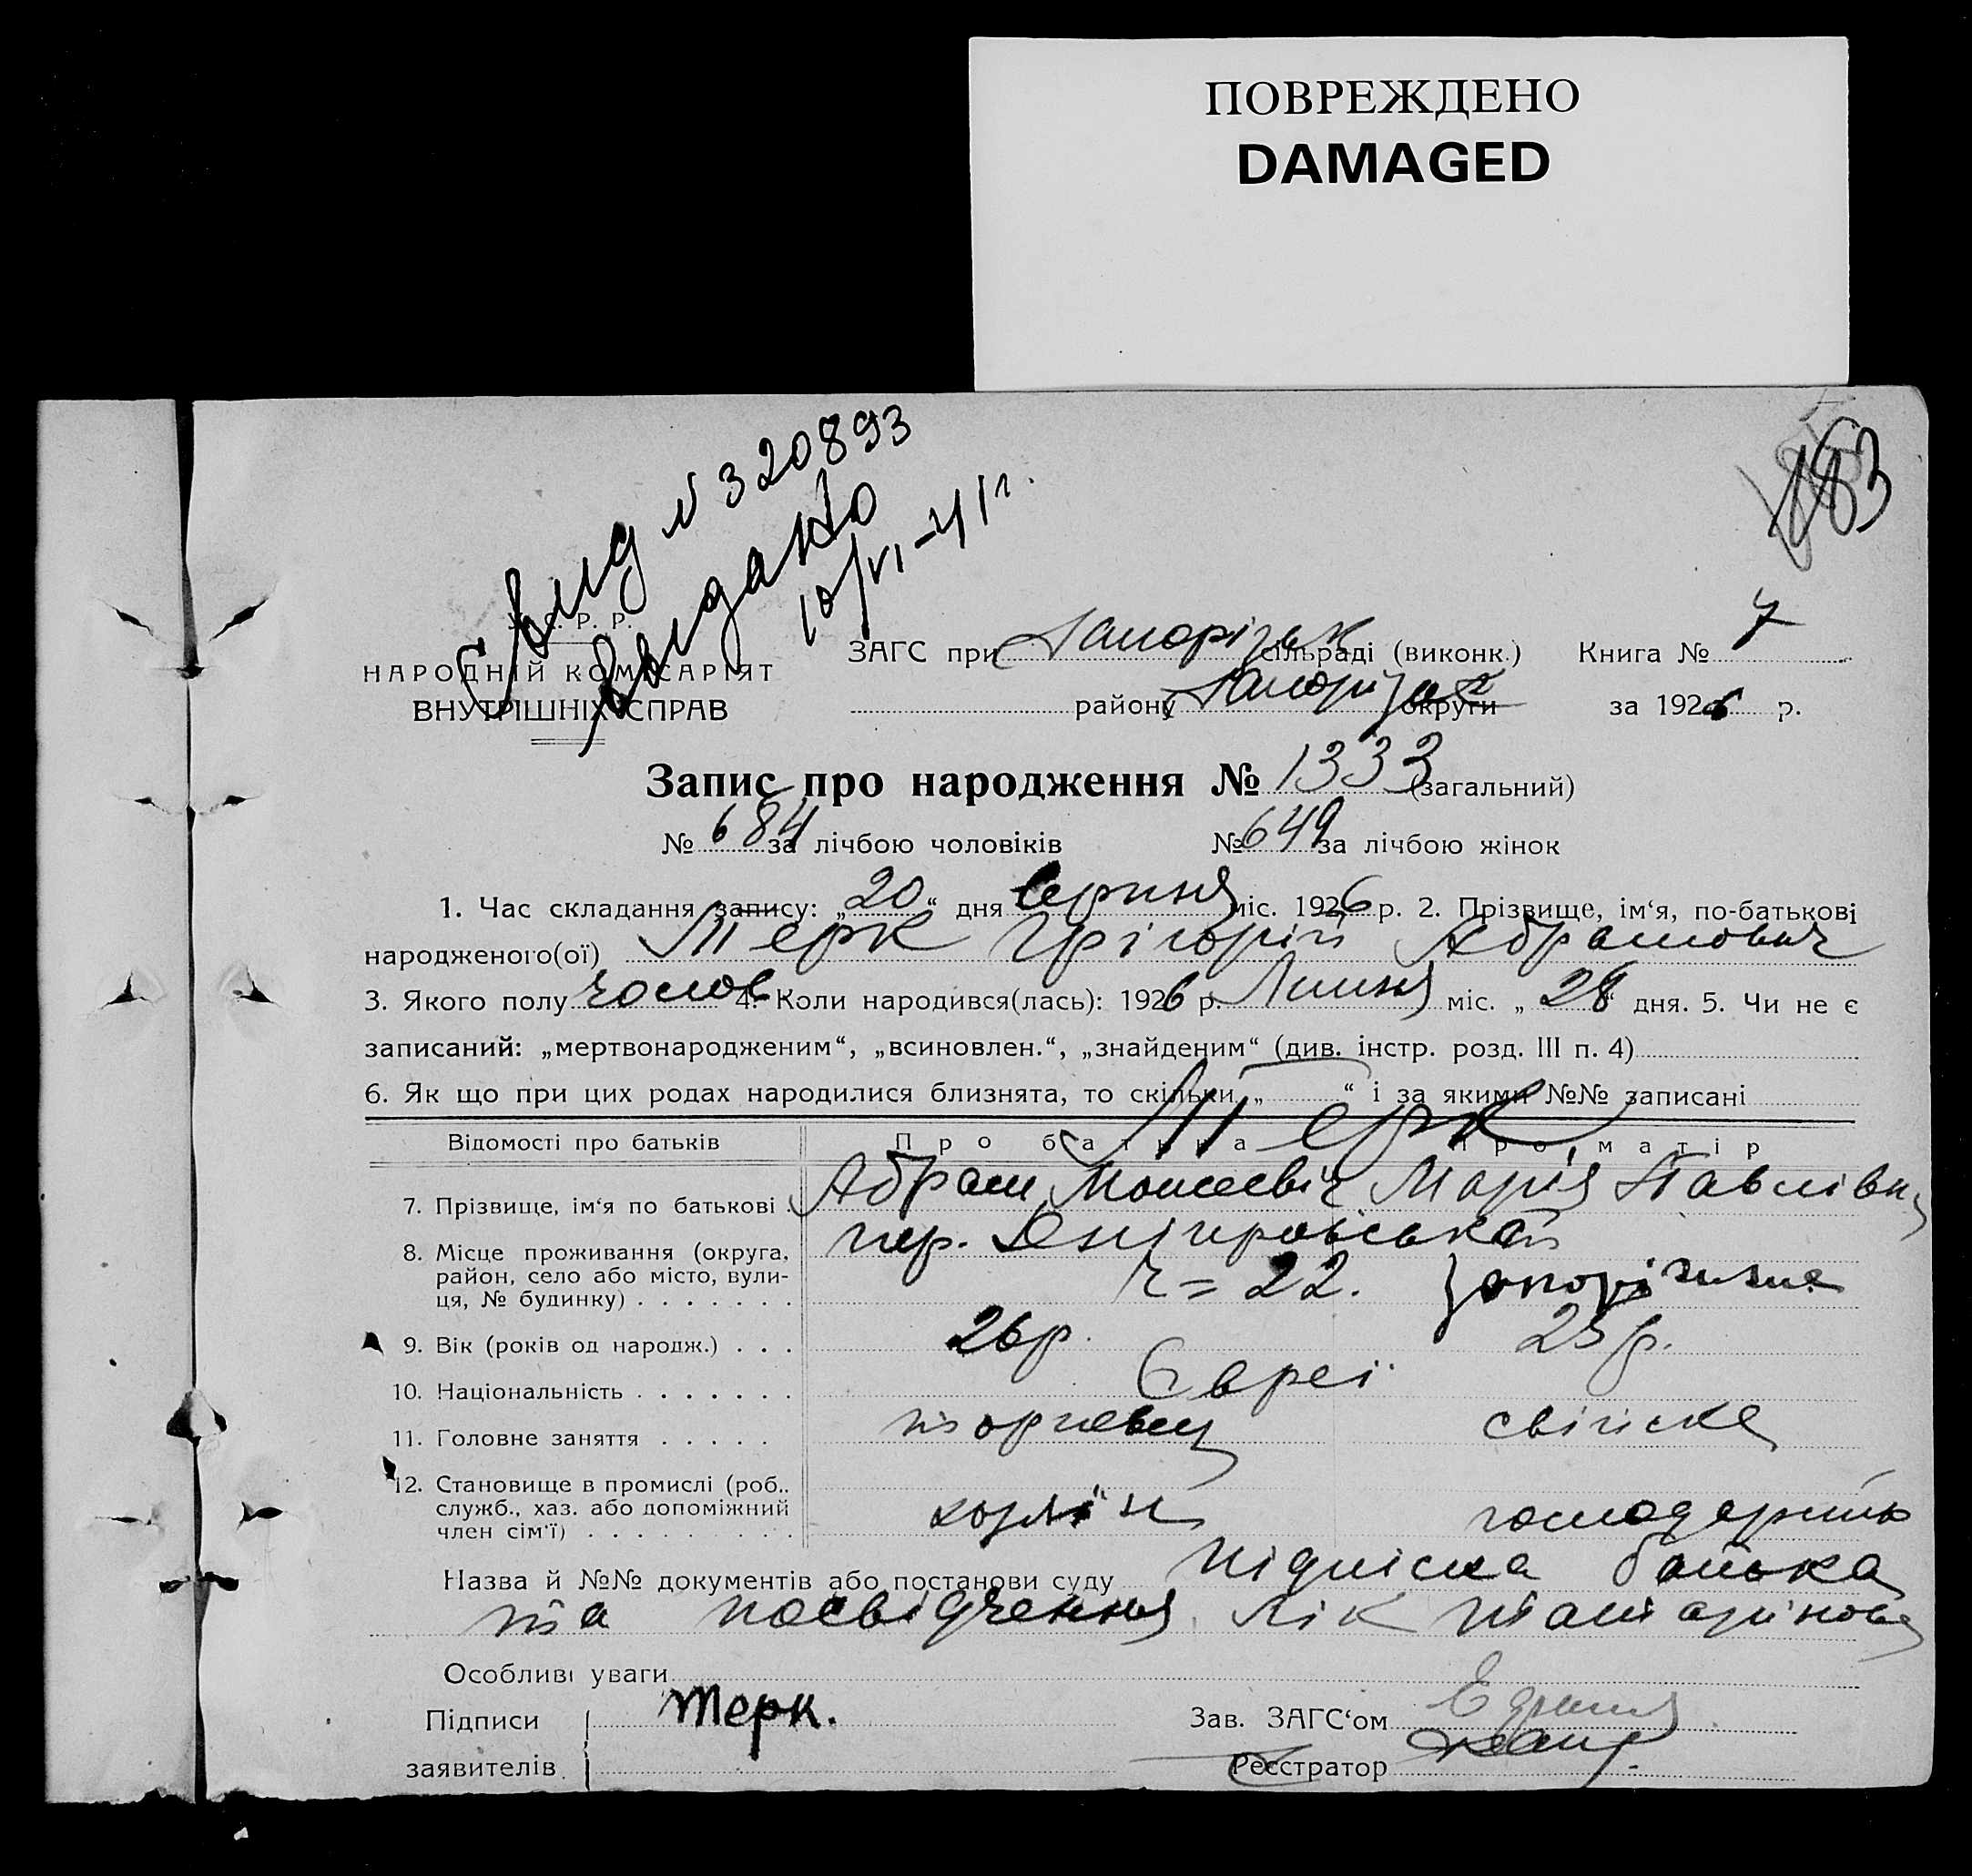 ПОВРЕЖДЕНО
DAMAGED
Свид N 320893
выдано
10/VI-41 г.
183
У. С. Р. Р.
НАРОДНІЙ КОМІСАРІЯТ
ВНУТРІШНІХ СПРАВ
ЗАГС при Запорізьк сільраді (виконк.) Книга № 7
району Запорізьк округи за 1926 р.
Запис про народження № 1333 (загальний)
№ 684 за лічбою чоловіків № 649 за лічбою жінок
1. Час складання запису: „20“ дня Серпня міс. 1926 р. 2. Прізвище, ім‘я, по-батькові
народженого(ої) Терк Грігорій Абрамович
3. Якого полу чолов 4. Коли народився(лась): 1926 р. Липня міс. „28“ дня. 5. Чи не є
записаний: „мертвонародженим“, „всиновлен.“, „знайденим“ (див. інстр. розд. III п. 4)
6. Як що при цих родах народилися близнята, то скільки „ “ і за якими №№ записані
Відомості про батьків Про батька Про матір
Терк
7. Прізвище, ім‘я по батькові . Абрам Моисеевіч Марія Павлівна
8. Місце проживання (округа, район, село або місто, вули- ця, № будинку) . . . . . . . пер. Дніпровський
ч = 22. Запоріжже
9. Вік (років од народж.) . . . 26 р. 25 р.
10. Національність . . . . . . . Євреї
11. Головне заняття . . . . . торговец свійска
12. Становище в промислі (роб.. служб., хаз. або допоміжний член сім‘ї) . . . . . . . . . хозяїн господарнь
Назва й №№ документів або постанови суду підписка батька
та посвідчення лік
Особливі уваги
Підписи Терк. Зав. ЗАГС‘ом
заявителів Реєстратор